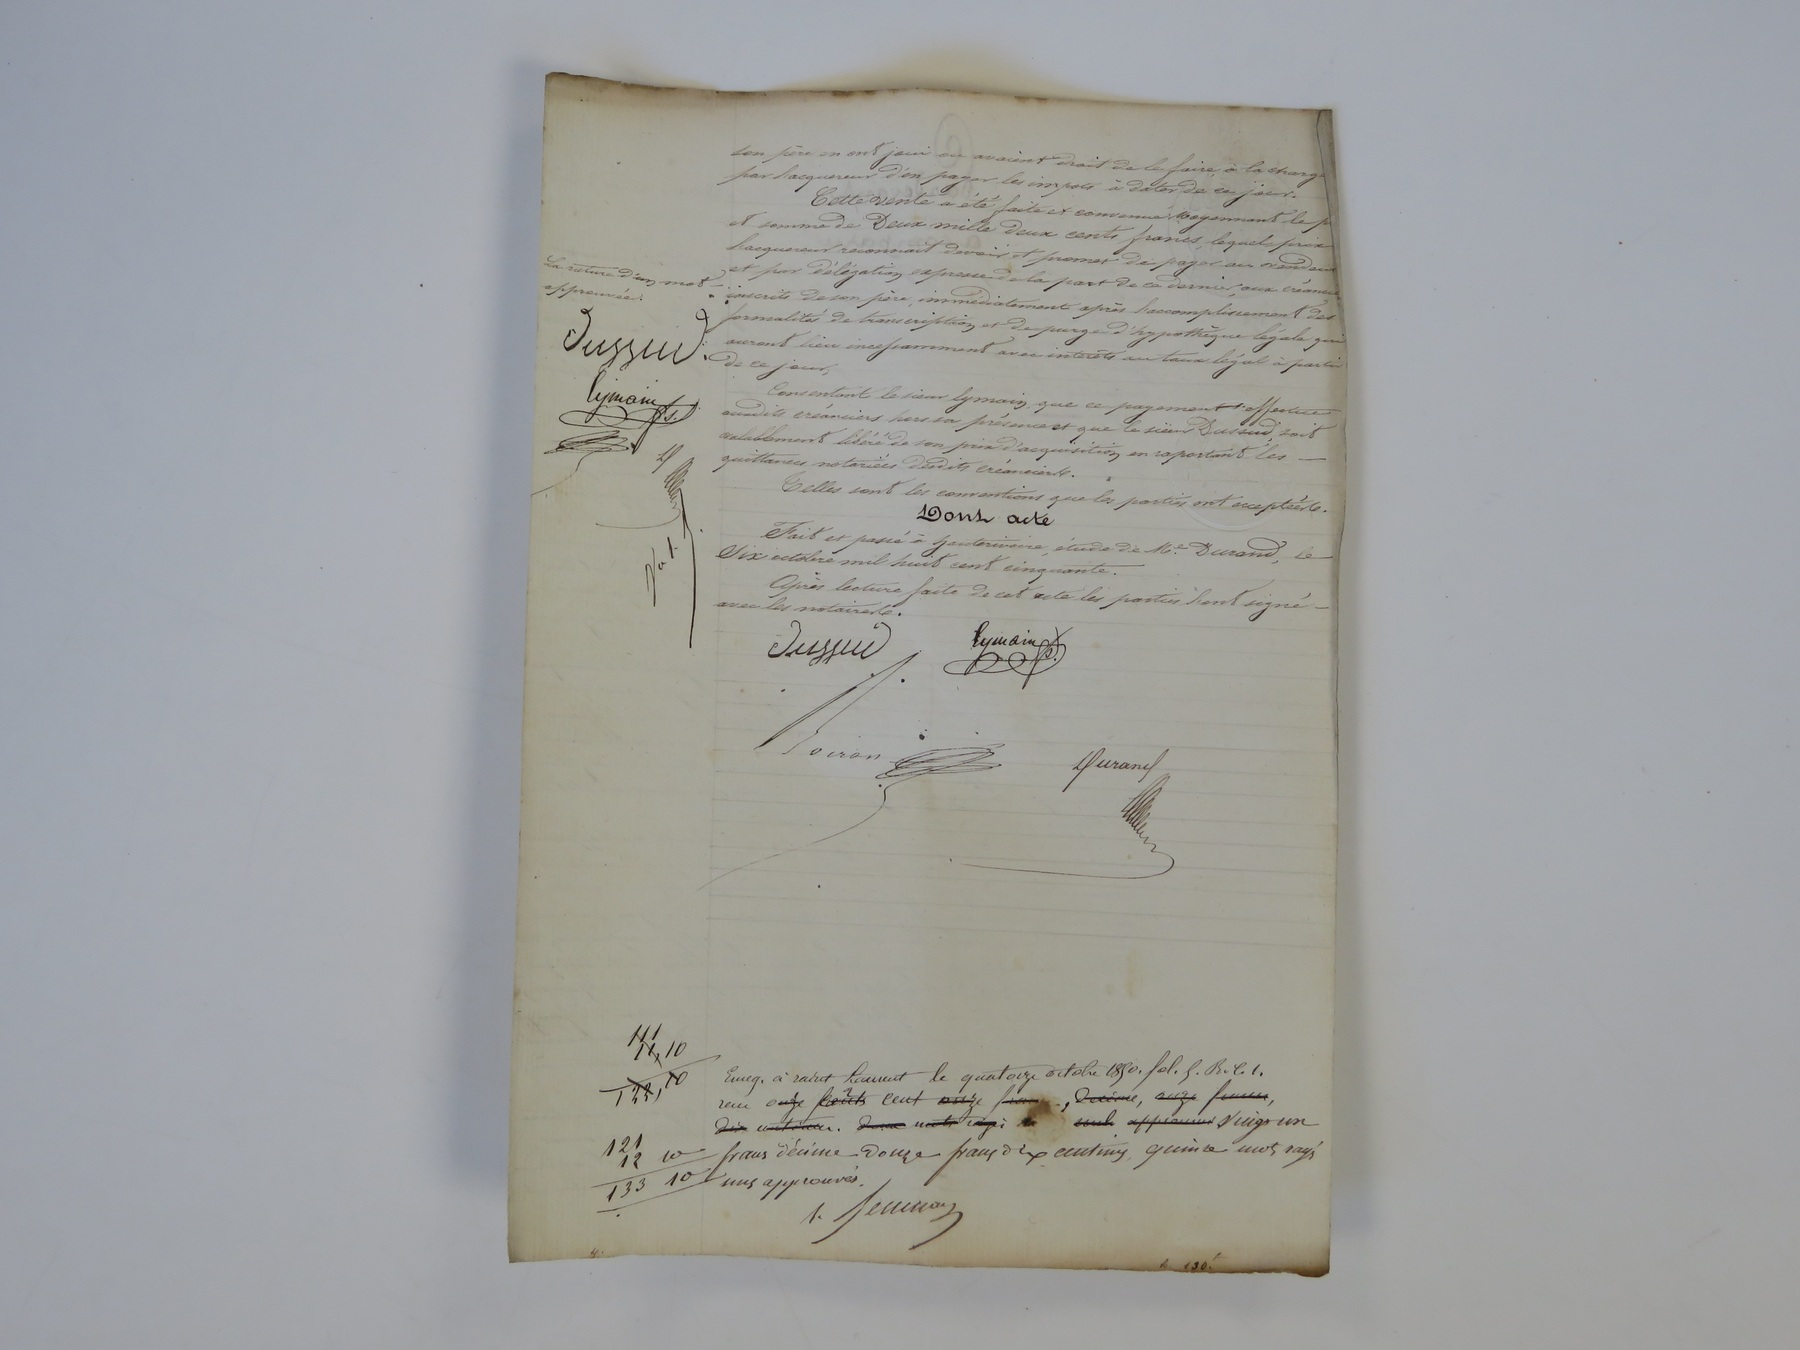 son père en ont joui ou avaient droit de le faire, à la charge
par l'acquereur d'en payer les impots à dater de ce jour.
Cette vente a été faite et convenue moyennant le p
et somme de Deux mille deux cents francs, lequel prix
l'acquereur reconnait devoir et promet de payer au vendeur
et par délégation expresse de la part de ce dernier, aux créanciers
inscrits de son père, immédiatement après l'accomplissement des
formalités de transcription et de purge d'hypothèque légale qui
auront lieu incessamment avec intérêts au taux légal à partir
de ce jour,
Consentant le sieur Eymain, que ce payement s'effectue
auxdits créanciers hors sa présence et que le sieur Dussud, soit
valablement libéré de son prix d'acquisition en raportant les
quittances notariées desdits créanciers.
Telles sont les conventions que les parties ont acceptées.
Dont acte
Fait et passé à hauterivoire, étude de Me. Durand, Le
Six octobre mil huit cent cinquante.
Après lecture faite de cet acte les parties l'ont signé
avec les notaires.
La rature d'un mot
approuvée.
Dussud
Eymain
Dussud Eymain
Durand
111
11,10
122,10
121
12 10
133 10
Enreg. à saint Laurent le quatorze octobre 1850. fol. 5. R. C. 1.
reçu cent onze
dix centimes. vingt un
francs décime Douze francs dix centimes, quinze mots rayés
nuls approuvés.